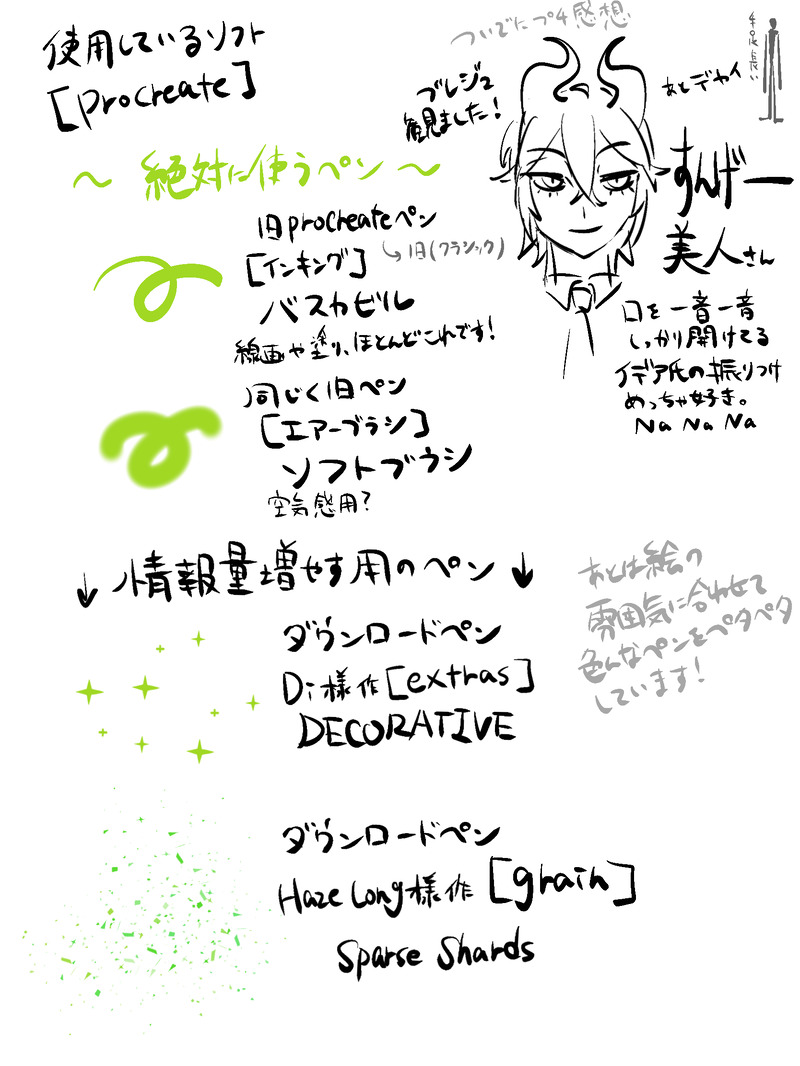 使用しているソフト
[Procreate]
〜 絶対に使うペン 〜
旧procreateペン
[インキング]
↳旧(クラシック)
バスカビル
線画や塗り、ほとんどこれです!
同じく旧ペン
[エアーブラシ]
ソフトブラシ
空気感用?
↓ 情報量増やす用のペン ↓
ダウンロードペン
Di様作[extras]
DECORATIVE
ダウンロードペン
Haze Long様作 [grain]
Sparse Shards
ついでにプ4感想
ブレジュ
観ました!
あとデカイ
手足長い
すんげー
美人さん
口を一音一音
しっかり開けてる
イデア氏の振りつけ
めっちゃ好き。
Na Na Na
あとは絵の
雰囲気に合わせて
色んなペンをペタペタ
しています!